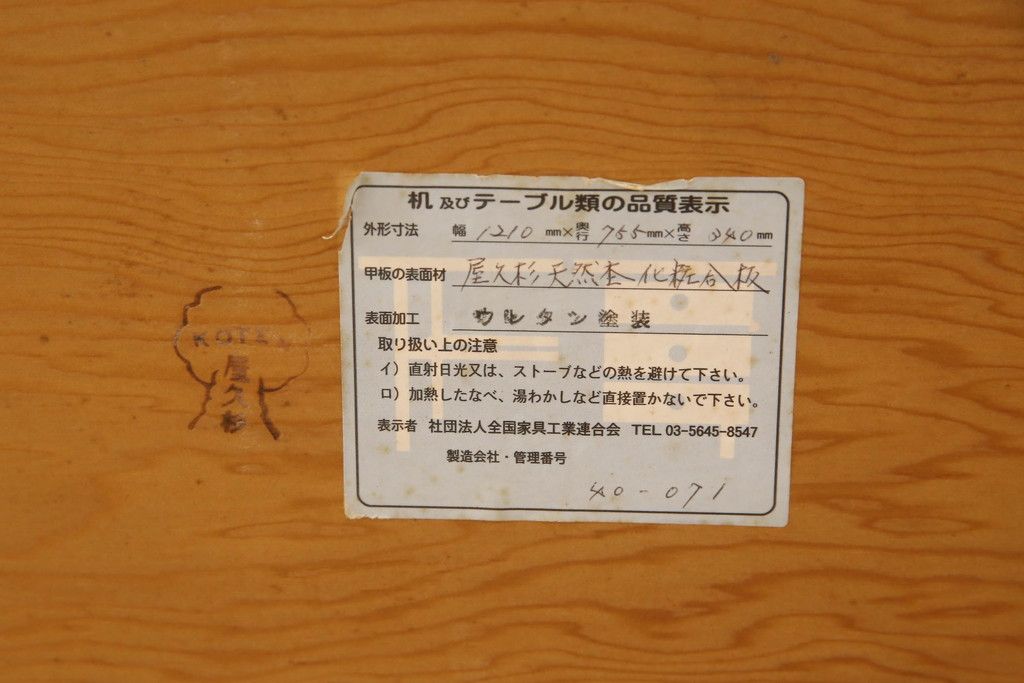 机及びテーブル類の品質表示
外形寸法 幅 1210 mm×奥行 755mm×高さ 340mm
甲板の表面材 屋久杉天然杢化粧合板
表面加工 ウレタン塗装
取り扱い上の注意
イ）直射日光又は、ストーブなどの熱を避けて下さい。
ロ）加熱したなべ、湯わかしなど直接置かないで下さい。
表示者 社団法人全国家具工業連合会 TEL 03-5645-8547
製造会社・管理番号
40-071
屋久杉